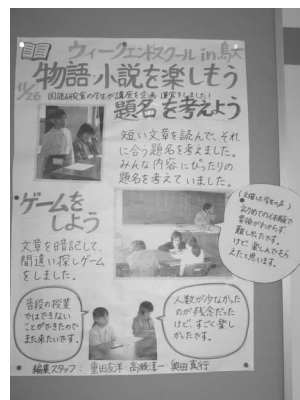 ウィークエンドスクール in 鳥大
物語・小説を楽しもう
11/26
国語研究室の学生が講座を企画・運営をしました!
題名を考えよう
短い文章を読んで、それ
に合う題名を考えました。
みんな内容にぴったりの
題名を考えていました。
ゲームを
しよう
文章を暗記して、
間違い探しゲーム
をしました。
(主催した学生の声)
初めての体験で
要領がわからず、
難しかったです。
けど、楽しんでもら
えたと思います。
普段の授業
ではできない
ことができたので
また来たいです。
人数が少なかった
のが残念だった
けど、すごく楽し
かったです。
編集スタッフ: 重田友洋・高瀬淳一・奥田真行